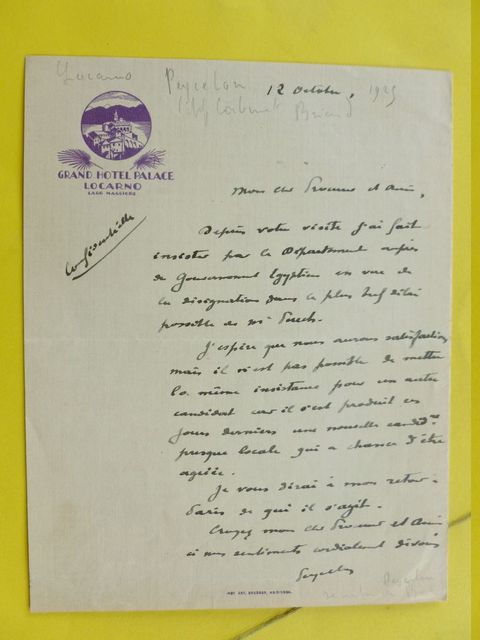 Locarno
Peycelon
12 octobre, 1925
Chef Cabinet Briand
GRAND HOTEL PALACE
LOCARNO
LAGO MAGGIORE
Confidentielle
Mon cher Procureur et Ami,
Depuis votre visite j'ai fait
insister par le Département auprès
du Gouvernement Egyptien en vue de
la désignation dans le plus bref délai
possible de Mr
J'espère que nous aurons satisfaction
mais il n'est pas possible de mettre
la même insistance pour un autre
candidat car il s'est produit ces
jours derniers une nouvelle candid.re
presque locale qui a chance d'être
agréée.
Je vous dirai à mon retour à
Paris de qui il s'agit.
Croyez mon cher Procureur et Ami
à mes sentiments cordialement dévoués
Peycelon
Peycelon